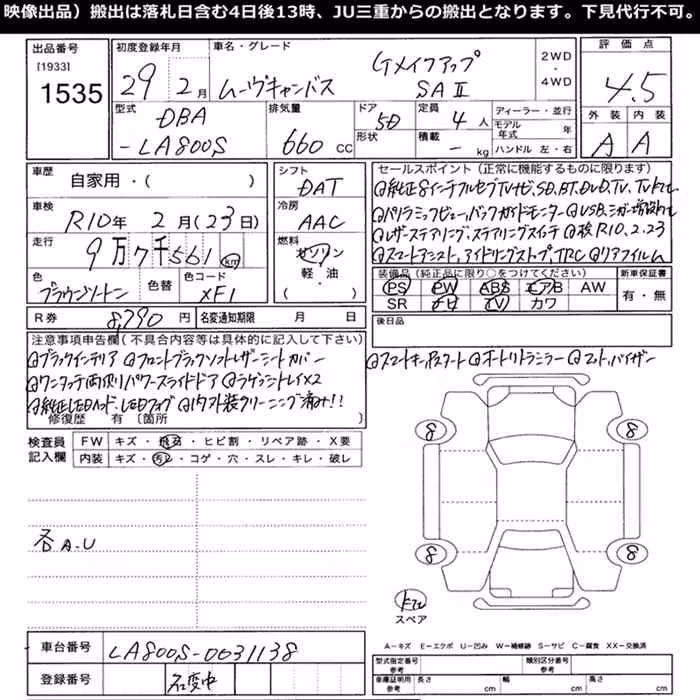 映像出品）搬出は落札日含む4日後13時、JU三重からの搬出となります。下見代行不可。
出品番号
[1933]
1535
初度登録年月
29年2月
車名・グレード
ムーヴキャンバス
Gメイクアップ
SAⅡ
2WD
・
4WD
評価点
4.5
外装 内装
A A
型式
DBA
-LA800S
排気量
660 CC
ドア
5D
形状
定員
4人
積載
- kg
ディーラー・並行
モデル年式 年
ハンドル 左・右
車歴
自家用・( )
車検
R10年 2月(23日)
走行
9万7千561 km
色
ブラウンツートン
色替
色コード
XF1
シフト
DAT
冷房
AAC
燃料
ガソリン
軽・油
( )
セールスポイント（正常に機能するものに限ります）
@純正8インチフルセグTVナビ、SD、BT、DVD、TV、
@パノラミックビュー、バックガイドモニター @USB、
@レザーステアリング、ステアリングスイッチ @検R10.2.23
@スマートアシスト、アイドリングストップ、TRC @リアフィルム
装備品（純正品に限り○をつけてください）
PS PW ABS エアB AW
SR ナビ TV カワ
新車保証書
有・無
R券
8,790円
名変通知期限 月 日
後日品
注意事項申告欄（不具合内容等は具体的に記入して下さい）
@ブラックインテリア @フロントブラックソフトレザーシートカバー
@スマートキー、Pスタート @オートリトラミラー @マット、バイザー
@ワンタッチ両側パワースライドドア @ラゲッジトレイX2
@純正LEDヘッド、LEDフォグ @内外装クリーニング済み!!
修復歴 有〔箇所 〕
検査員
記入欄
FW キズ・飛石・ヒビ割・リペア跡・X要
内装 キズ・汚レ・コゲ・穴・スレ・キレ・破レ
各A.U
8
8
8
8
スペア
車台番号
LA800S-0031138
登録番号
名変中
A－キズ E－エクボ U－凹み W－補修跡 S－サビ C－腐食 XX－交換済
型式指定番号
参考
類別区分番号
参考
車庫証明用
参考
長さ cm
幅 cm
高さ cm